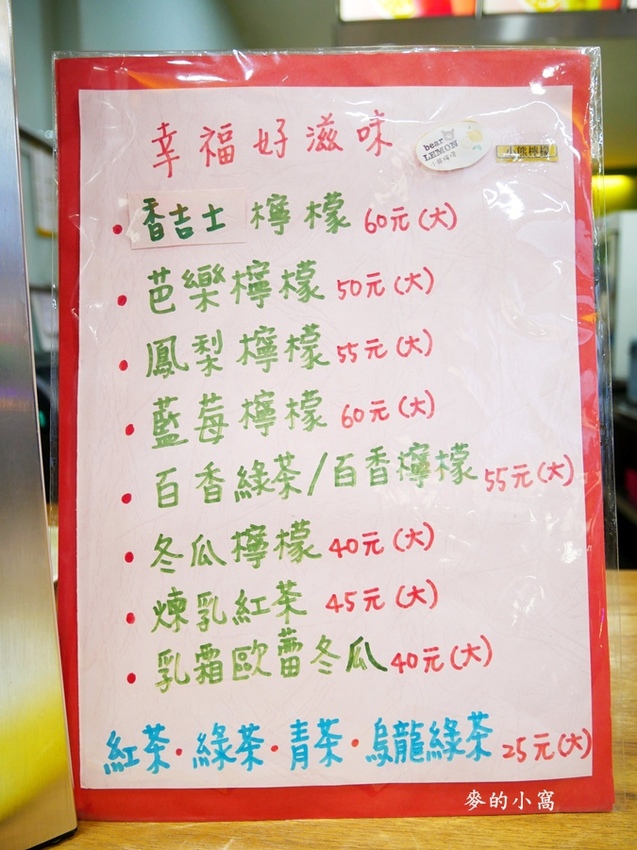 幸福好滋味
bear
LEMON
小熊檸檬
小熊檸檬
•香吉士檸檬 60元(大)
•芭樂檸檬 50元(大)
•鳳梨檸檬 55元(大)
•藍莓檸檬 60元(大)
•百香綠茶/百香檸檬 55元(大)
•冬瓜檸檬 40元(大)
•煉乳紅茶 45元(大)
•乳霜歐蕾冬瓜 40元(大)
紅茶•綠茶•青茶•烏龍綠茶 25元(大)
麥的小窩